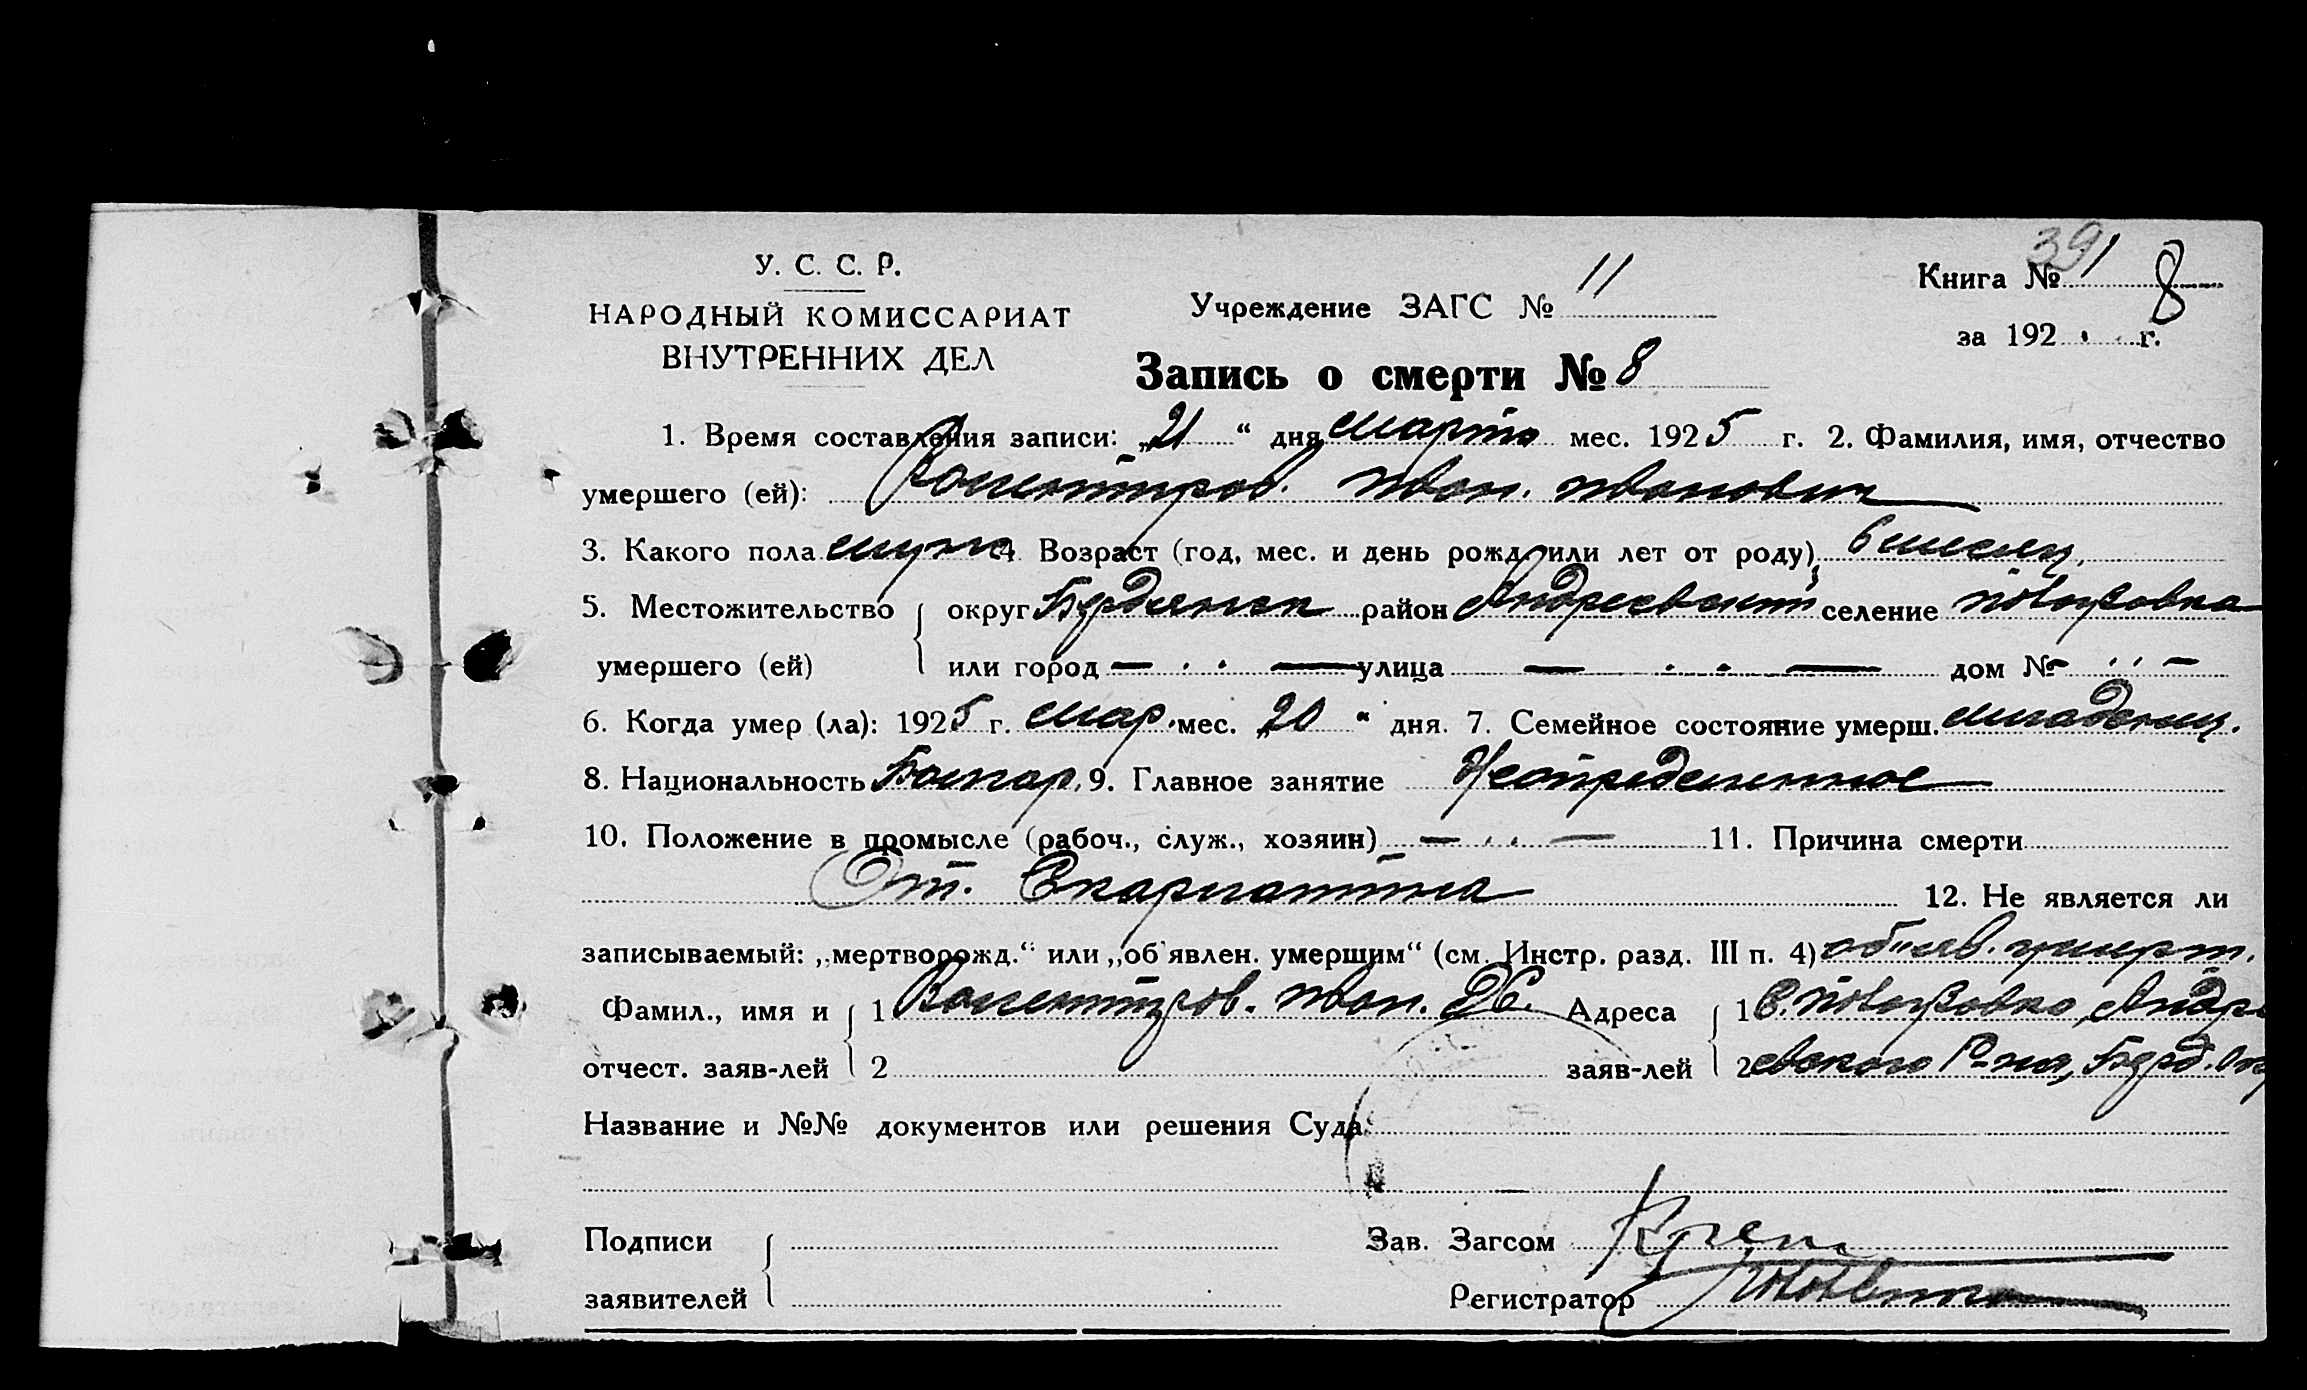 391 8
У. С. С. Р.
НАРОДНЫЙ КОМИССАРИАТ
ВНУТРЕННИХ ДЕЛ
Учреждение ЗАГС № 11
Книга №
за 192 г.
Запись о смерти № 8
1. Время составления записи: „21“ дня марта мес. 1925 г. 2. Фамилия, имя, отчество
умершего (ей): Иван. Иванович
3. Какого пола муж 4 Возраст (год, мес. и день рожд. или лет от роду) 6 месяц.
5. Местожительство { округ Бердянск район Андреевский селение
умершего (ей) или город — · · — улица — · · — дом № — · · —
6. Когда умер (ла): 1925 г. мар. мес. „20“ дня. 7. Семейное состояние умерш. младенец.
8. Национальность Болгар. 9. Главное занятие Неопределенное
10. Положение в промысле (рабоч., служ., хозяин) — · · — 11. Причина смерти
От. Скарлатина
12. Не является ли
записываемый: „мертворожд.“ или „об'явлен. умершим“ (см. Инстр. разд. III п. 4) об'яв. умерш.
Фамил., имя и { 1 Иван. Адреса { 1 С. Андре
отчест. заяв-лей 2 заяв-лей 2 евского Р-на, Берд. Окр
Название и №№ документов или решения Суда:
Подписи { Зав. Загсом
заявителей Регистратор